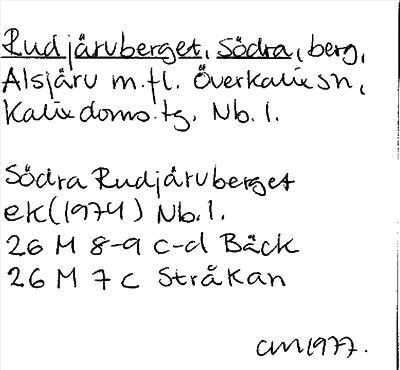 Rudjärvberget, Södra, berg,
Alsjärv m.fl. Överkalix sn,
Kalix doms.tg. Nb. l.
Södra Rudjärvberget
ek (1974) Nb. l.
26 M 8-9 c-d Bäck
26 M 7 c Stråkan
1977.